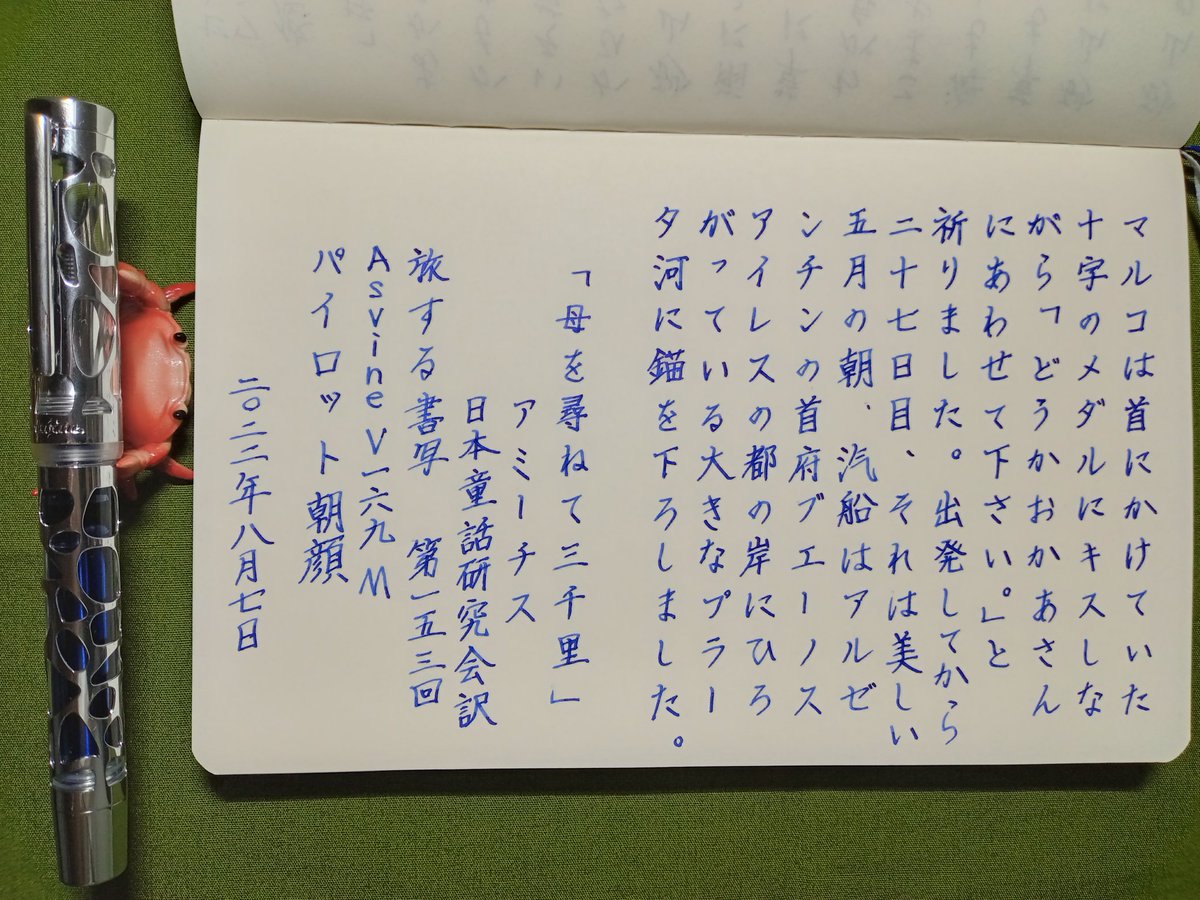 マルコは首にかけていた
十字のメダルにキスしな
がら「どうかおかあさん
にあわせて下さい。」と
祈りました。出発してから
二十七日目、それは美しい
五月の朝、汽船はアルゼ
ンチンの首府ブエーノス
アイレスの都の岸にひろ
がっている大きなプラー
タ河に錨を下ろしました。
「母を尋ねて三千里」
アミーチス
日本童話研究会訳
旅する書写　第一五三回
Asvine V一六九 M
パイロット朝顔
二〇二二年八月七日